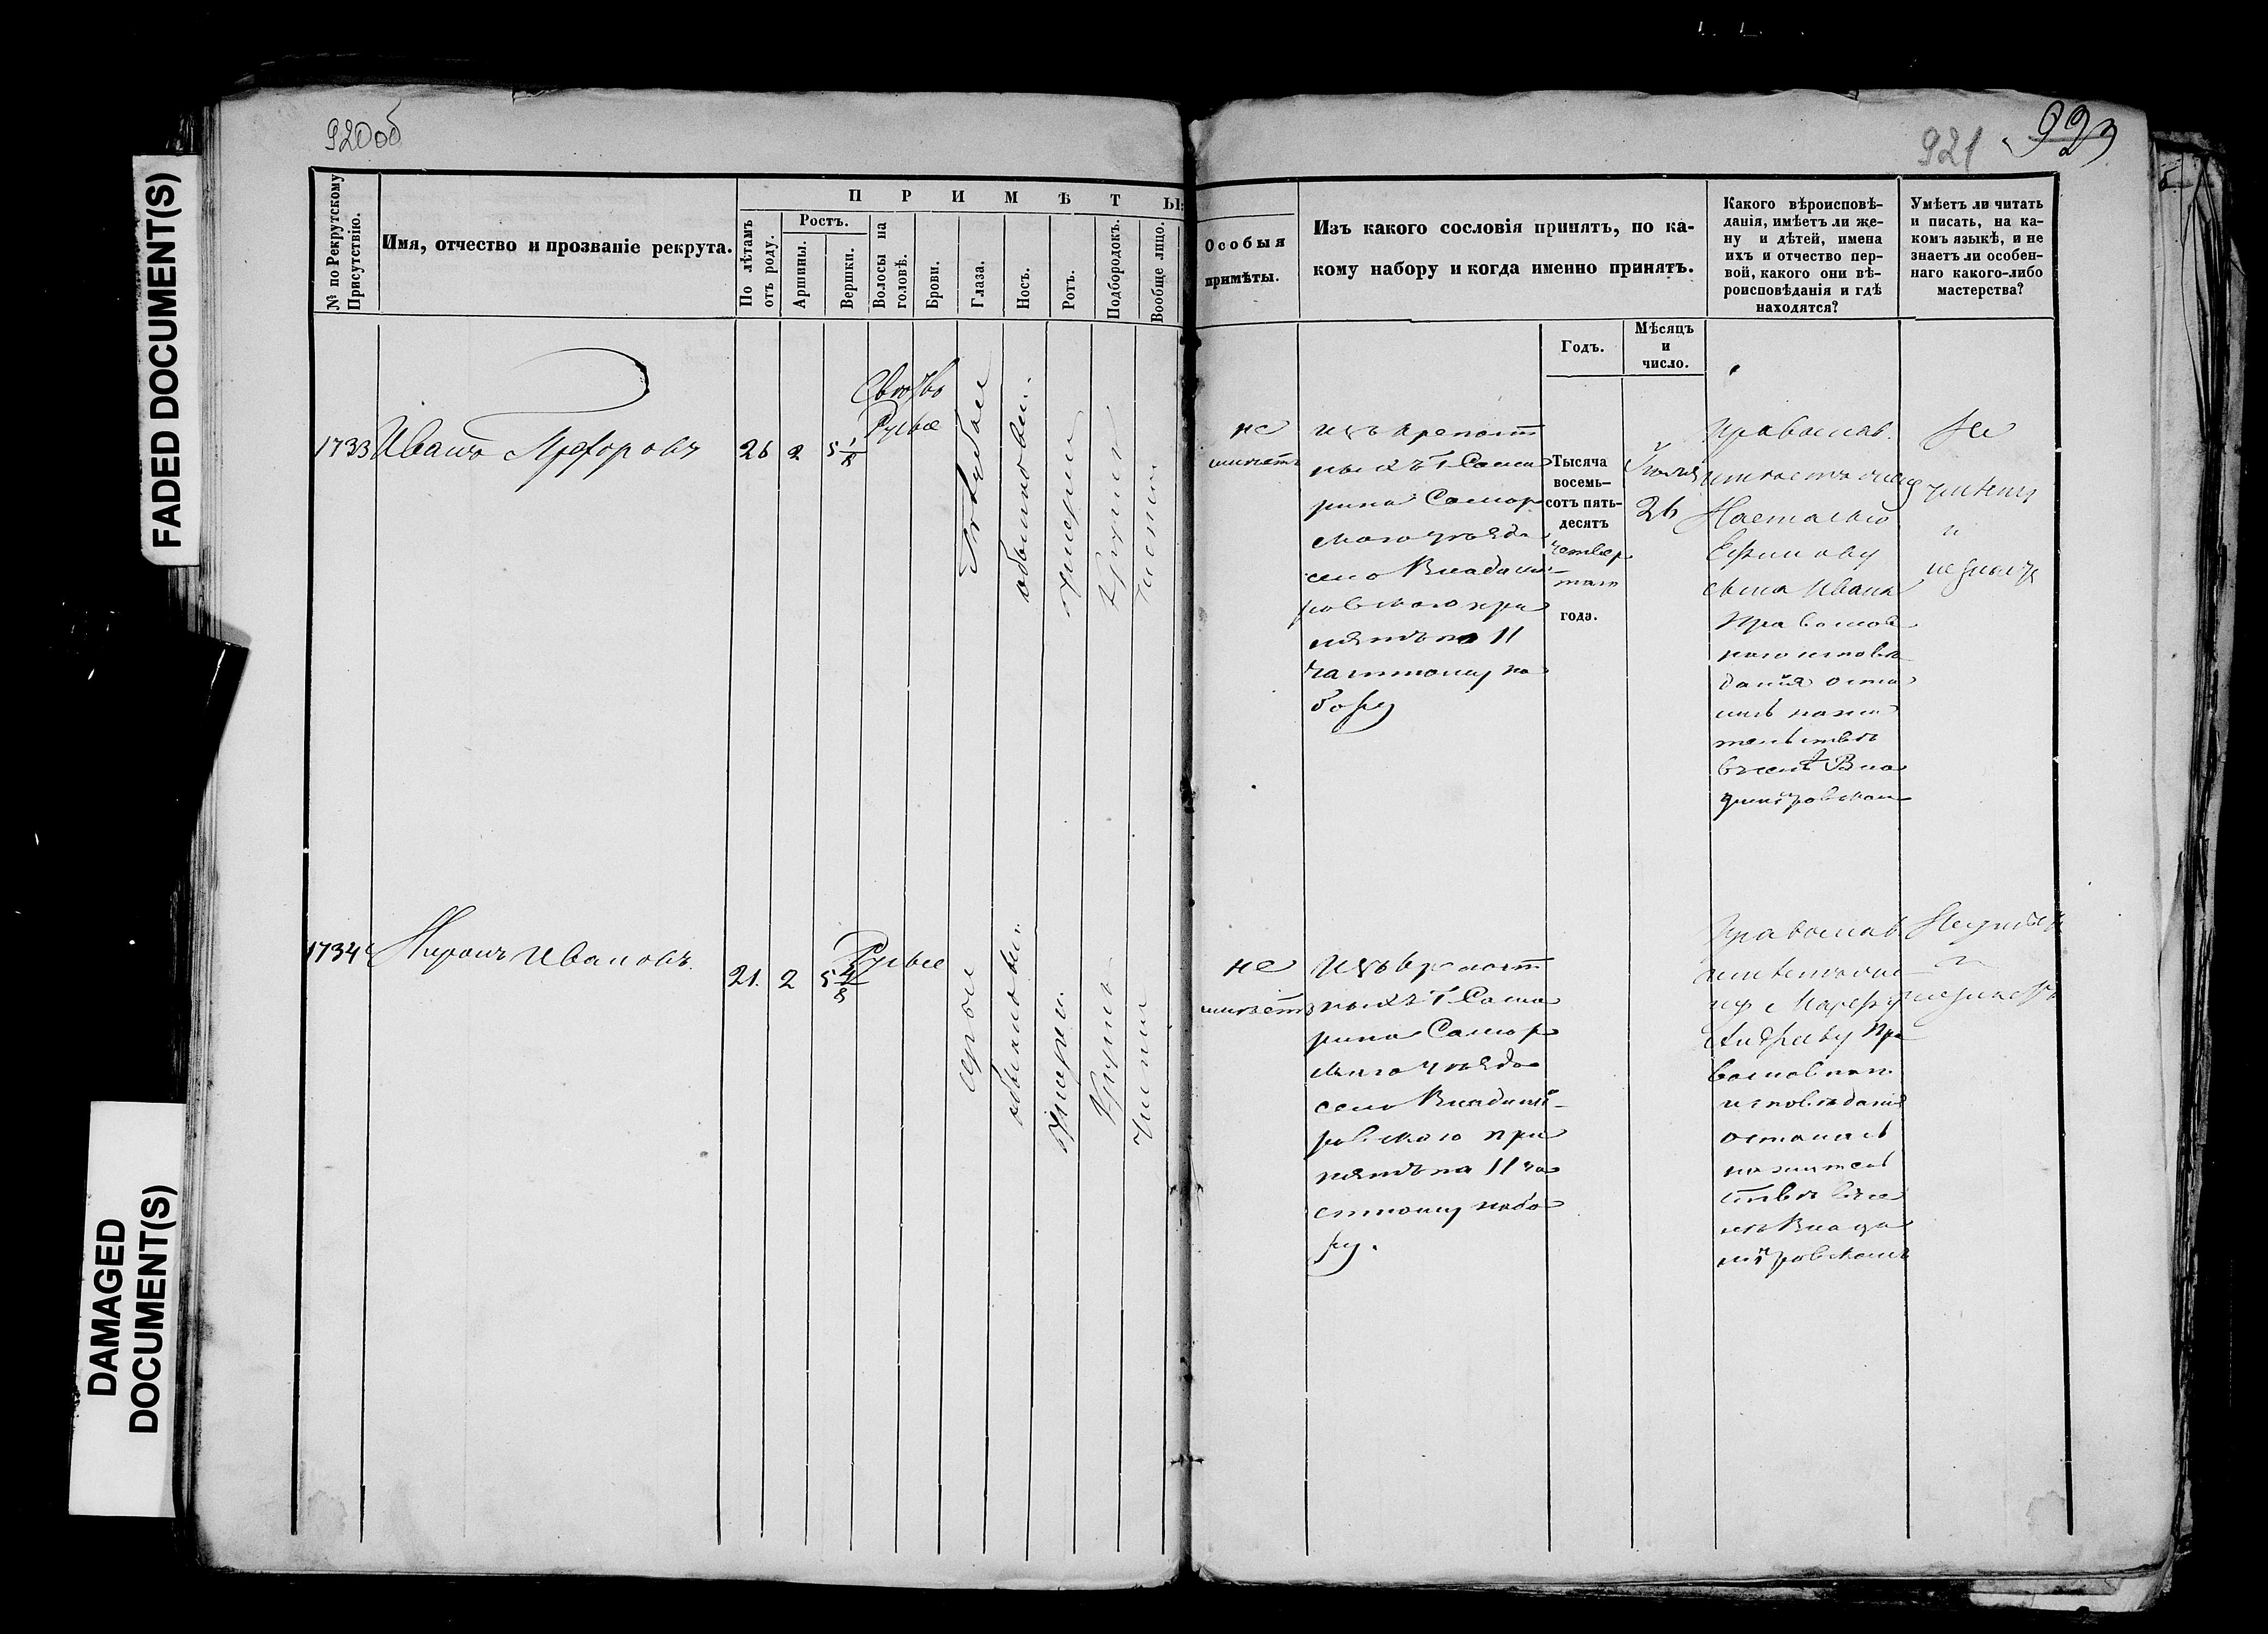 920об
921
923
FADED DOCUMENT(S)
DAMAGED
DOCUMENT(S)
№ по Рекрутскому
Присутствію.
Имя, отчество и прозваніе рекрута.
ПРИМѢТЫ:
По лѣтамъ
отъ роду.
Ростъ.
Аршины.
Вершки.
Волосы на
головѣ.
Брови.
Глаза.
Носъ.
Ротъ.
Подбородокъ.
Вообще лицо.
Особыя
примѣты.
Изъ какого сословія принятъ, по ка-
кому набору и когда именно принятъ.
Годъ.
Мѣсяцъ
и
число.
Какого вѣроисповѣ-
данія, имѣетъ ли же-
ну и дѣтей, имена
ихъ и отчество пер-
вой, какого они вѣ-
роисповѣданія и гдѣ
находятся?
Умѣетъ ли читать
и писать, на ка-
комъ языкѣ, и не
знаетъ ли особен-
наго какого-либо
мастерства?
1733
Иванъ
26
2
5 1/8
Свѣтло
Русые
Голубые
обыкновен.
умерен
Кругл
чистое
не
имѣетъ
изъ крепост
ныхъ Г Сама
рина Самар
скаго уѣзда
село Владими
ровскаго при
нятъ по 11
частному на
бору
Тысяча
восемь-
сотъ пять-
десятъ
четвер
таго
года.
Іюля
26
Православ.
имѣетъ жену
Настасью
Ефимову
сына Ивана
Православ
наго исповѣ
данія оста
лись на жи
тельствѣ
въ селѣ Вла
димировскомъ
Не
умѣетъ
и
незнаетъ
1734
Ивановъ.
21.
2
5 4/8
Русые
серые
обыкновен.
умерен.
Кругл
чистое
не
имѣетъ
Изъ крепост
ныхъ Г Сама
рина Самар
скаго уѣзда
село Владими
ровскаго при
нятъ по 11 ча
стному набо
ру.
Православ
имѣетъ же
ну
Андрееву Пра
вославнаго
исповѣданія
осталась
на жител
ствѣ въ се
лѣ Влади
мировскомъ
Неумѣетъ
и
незнаетъ